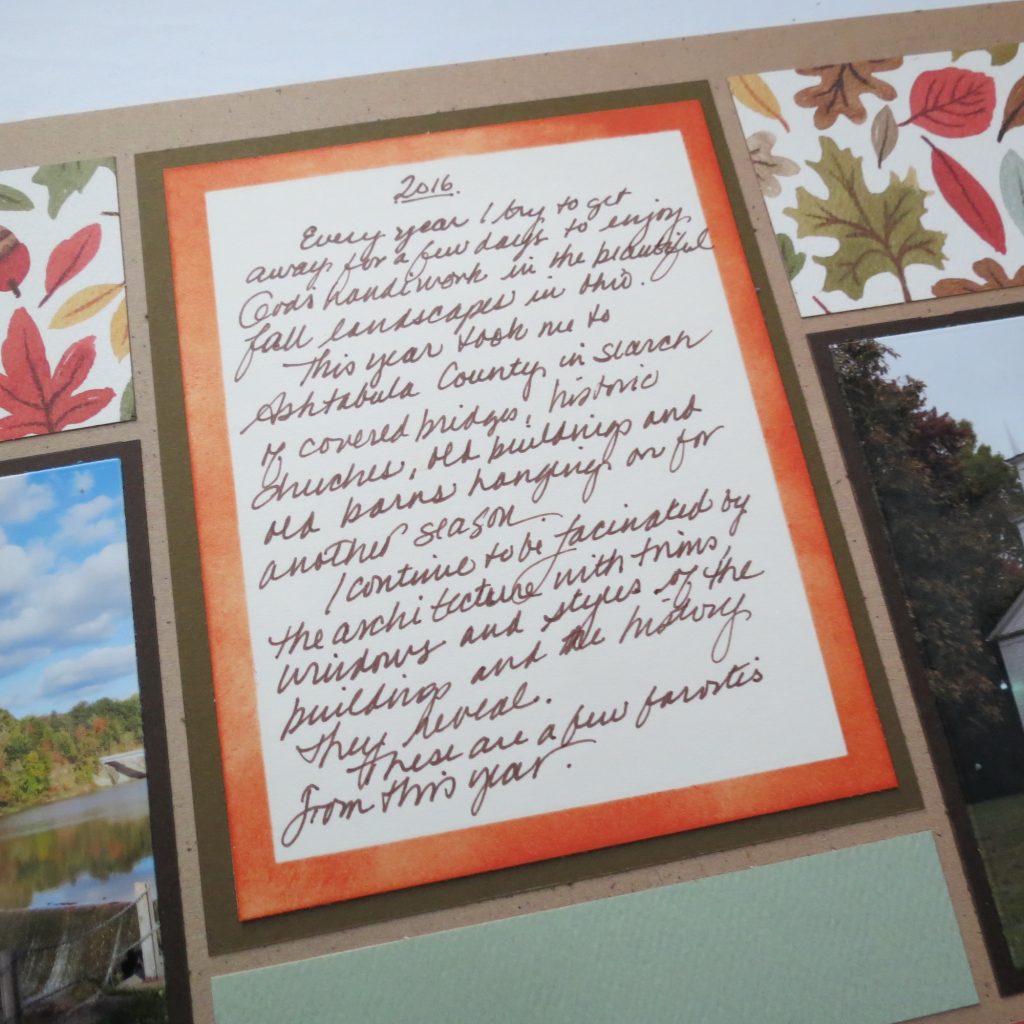 2016.
Every year I try to get
away for a few days to enjoy
Gods handiwork in the beautiful
fall landscapes in Ohio.
This year took me to
Ashtabula County in search
of covered bridges, historic
Chruches, old buildings and
old barns hanging on for
another season.
I continue to be facinated by
the architecture with trims,
windows and styles of the
buildings and the history
they reveal.
These are a few favorites
from this year.